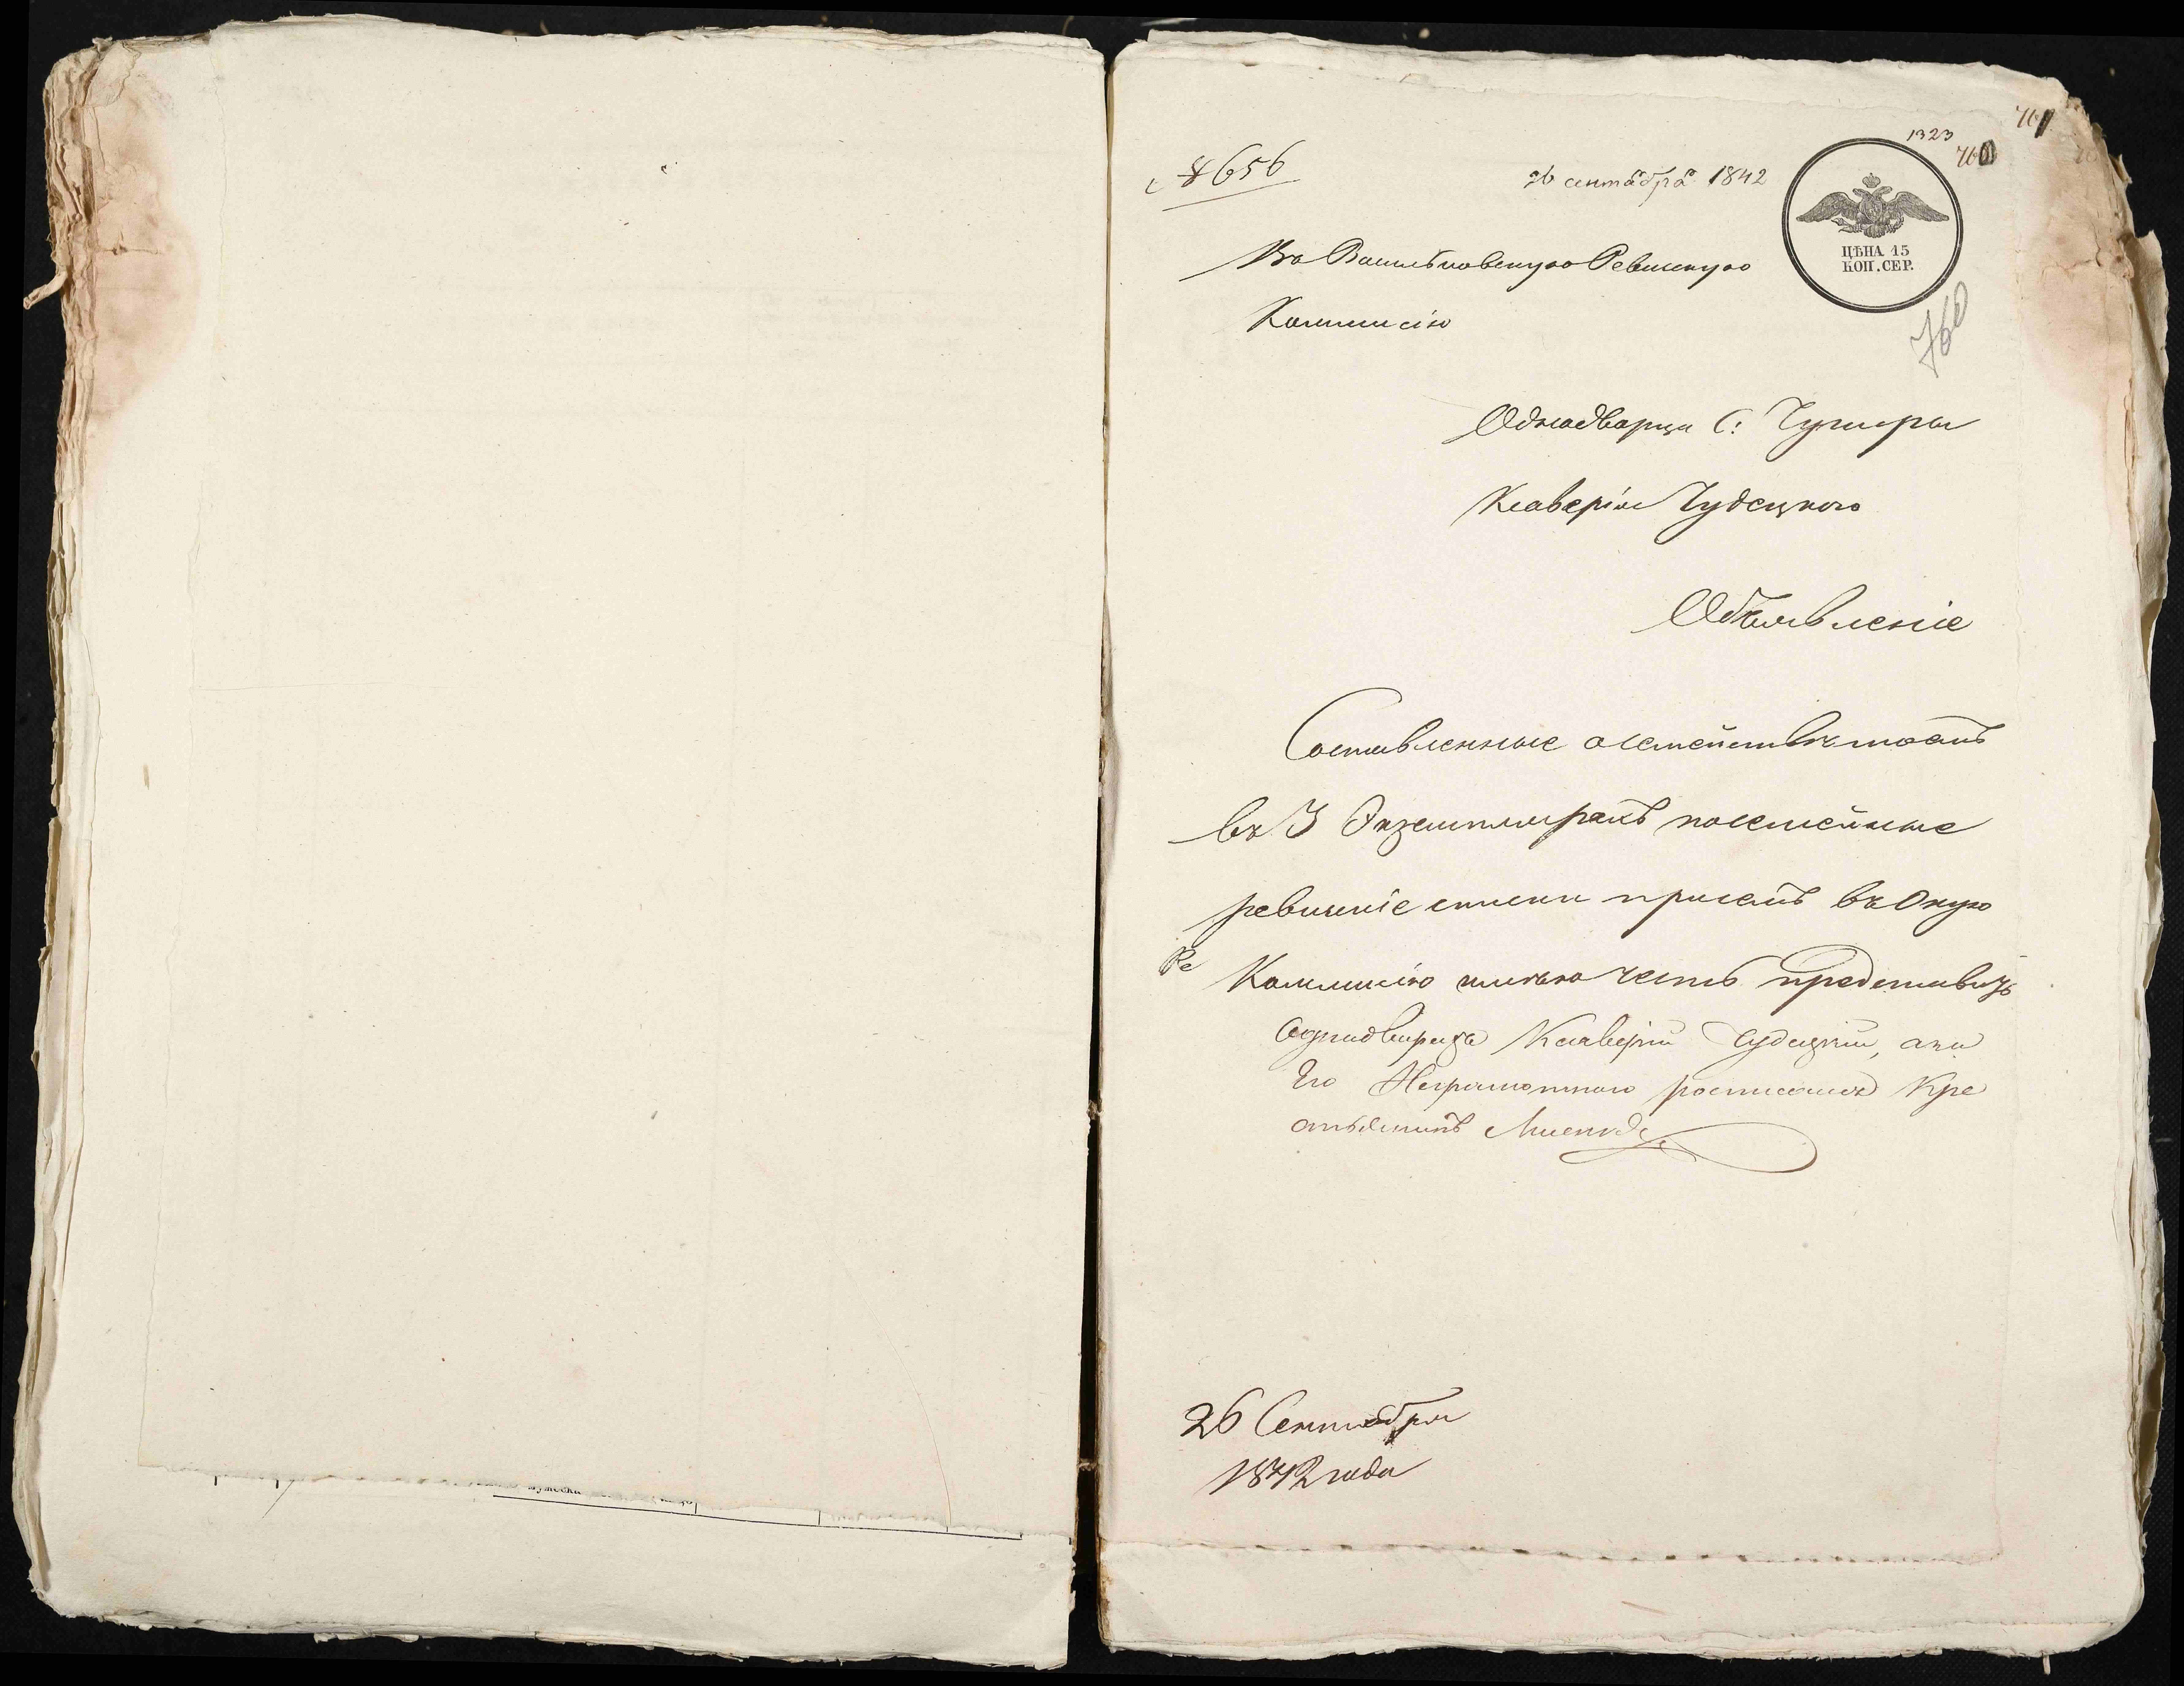 1323
761
760
8656
26 сентября 1842
ЦѢНА 15
КОП. СЕР.
760
Въ Васильковскую Ревизскую
Коммисію
Однодворца С:
Ксаверія Чудецкого
Объявленіе
Составленные о семействѣ моемъ
въ 3 Экземплярахъ посемейные
ревизскіе списки при семъ въ Оную
Ре Коммисію имѣю честь представить
Однодворецъ Ксаверій Чудецкій, а за
Его Неграмотного росписался Кре
26 Сентября
1842 года